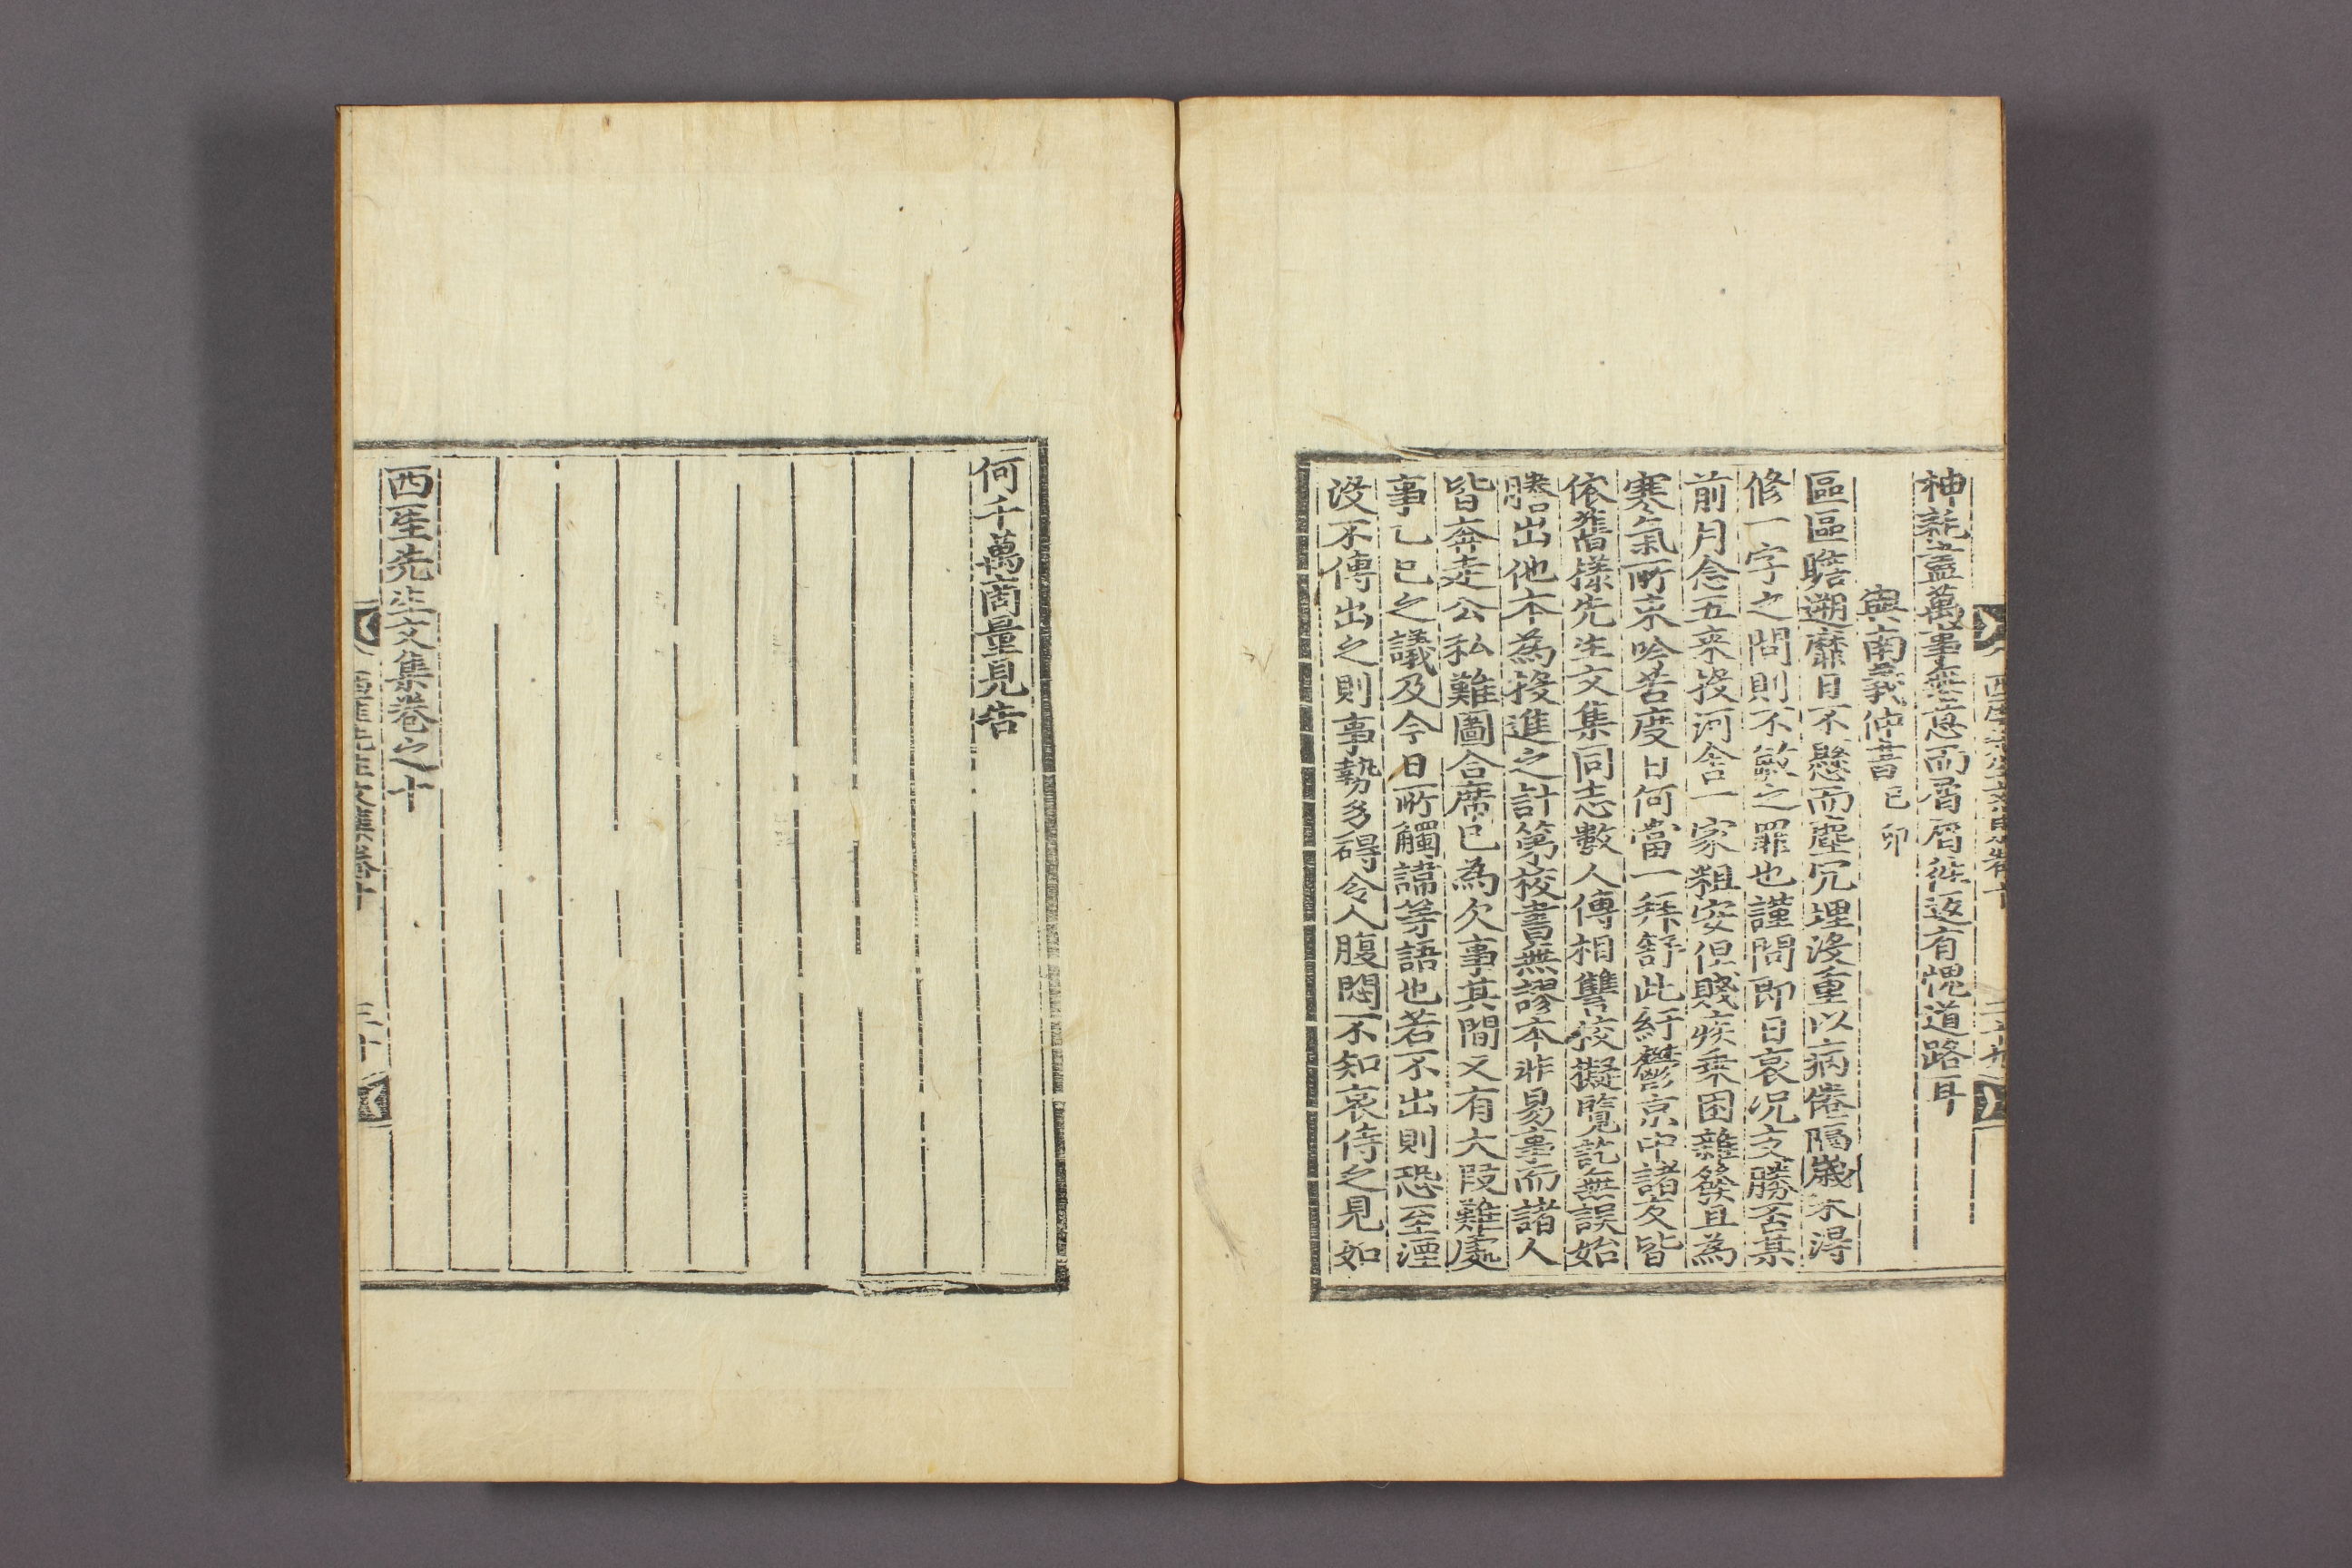 神耗盖萬事無意而屑屑徃返有愧道路耳
與南義仲蓍己卯
區區瞻遡靡日不懸而塵冗埋没重以病倦隔歲不得
修一字之問則不敏之罪也謹問即日哀况支勝否某
前月念五來投河舍一家粗安但賤疾乗困雜發且為
寒氣所束吟苦度日何當一拜舒此紆鬱京中諸友皆
依舊㨾先生文集同志數人傳相讐挍擬覽訖無誤始
謄出他本為投進之計第挍書無謬本非易事而諸人
皆奔走公私難圖合席已為欠事其間又有大叚難處
事乙巳之議及今日所觸諱等語也若不出則恐至湮
没不傳出之則事勢多碍令人腹悶不知哀侍之見如
何千萬商量見告
西厓先生文集卷之十
西厓先生文集卷十
三十